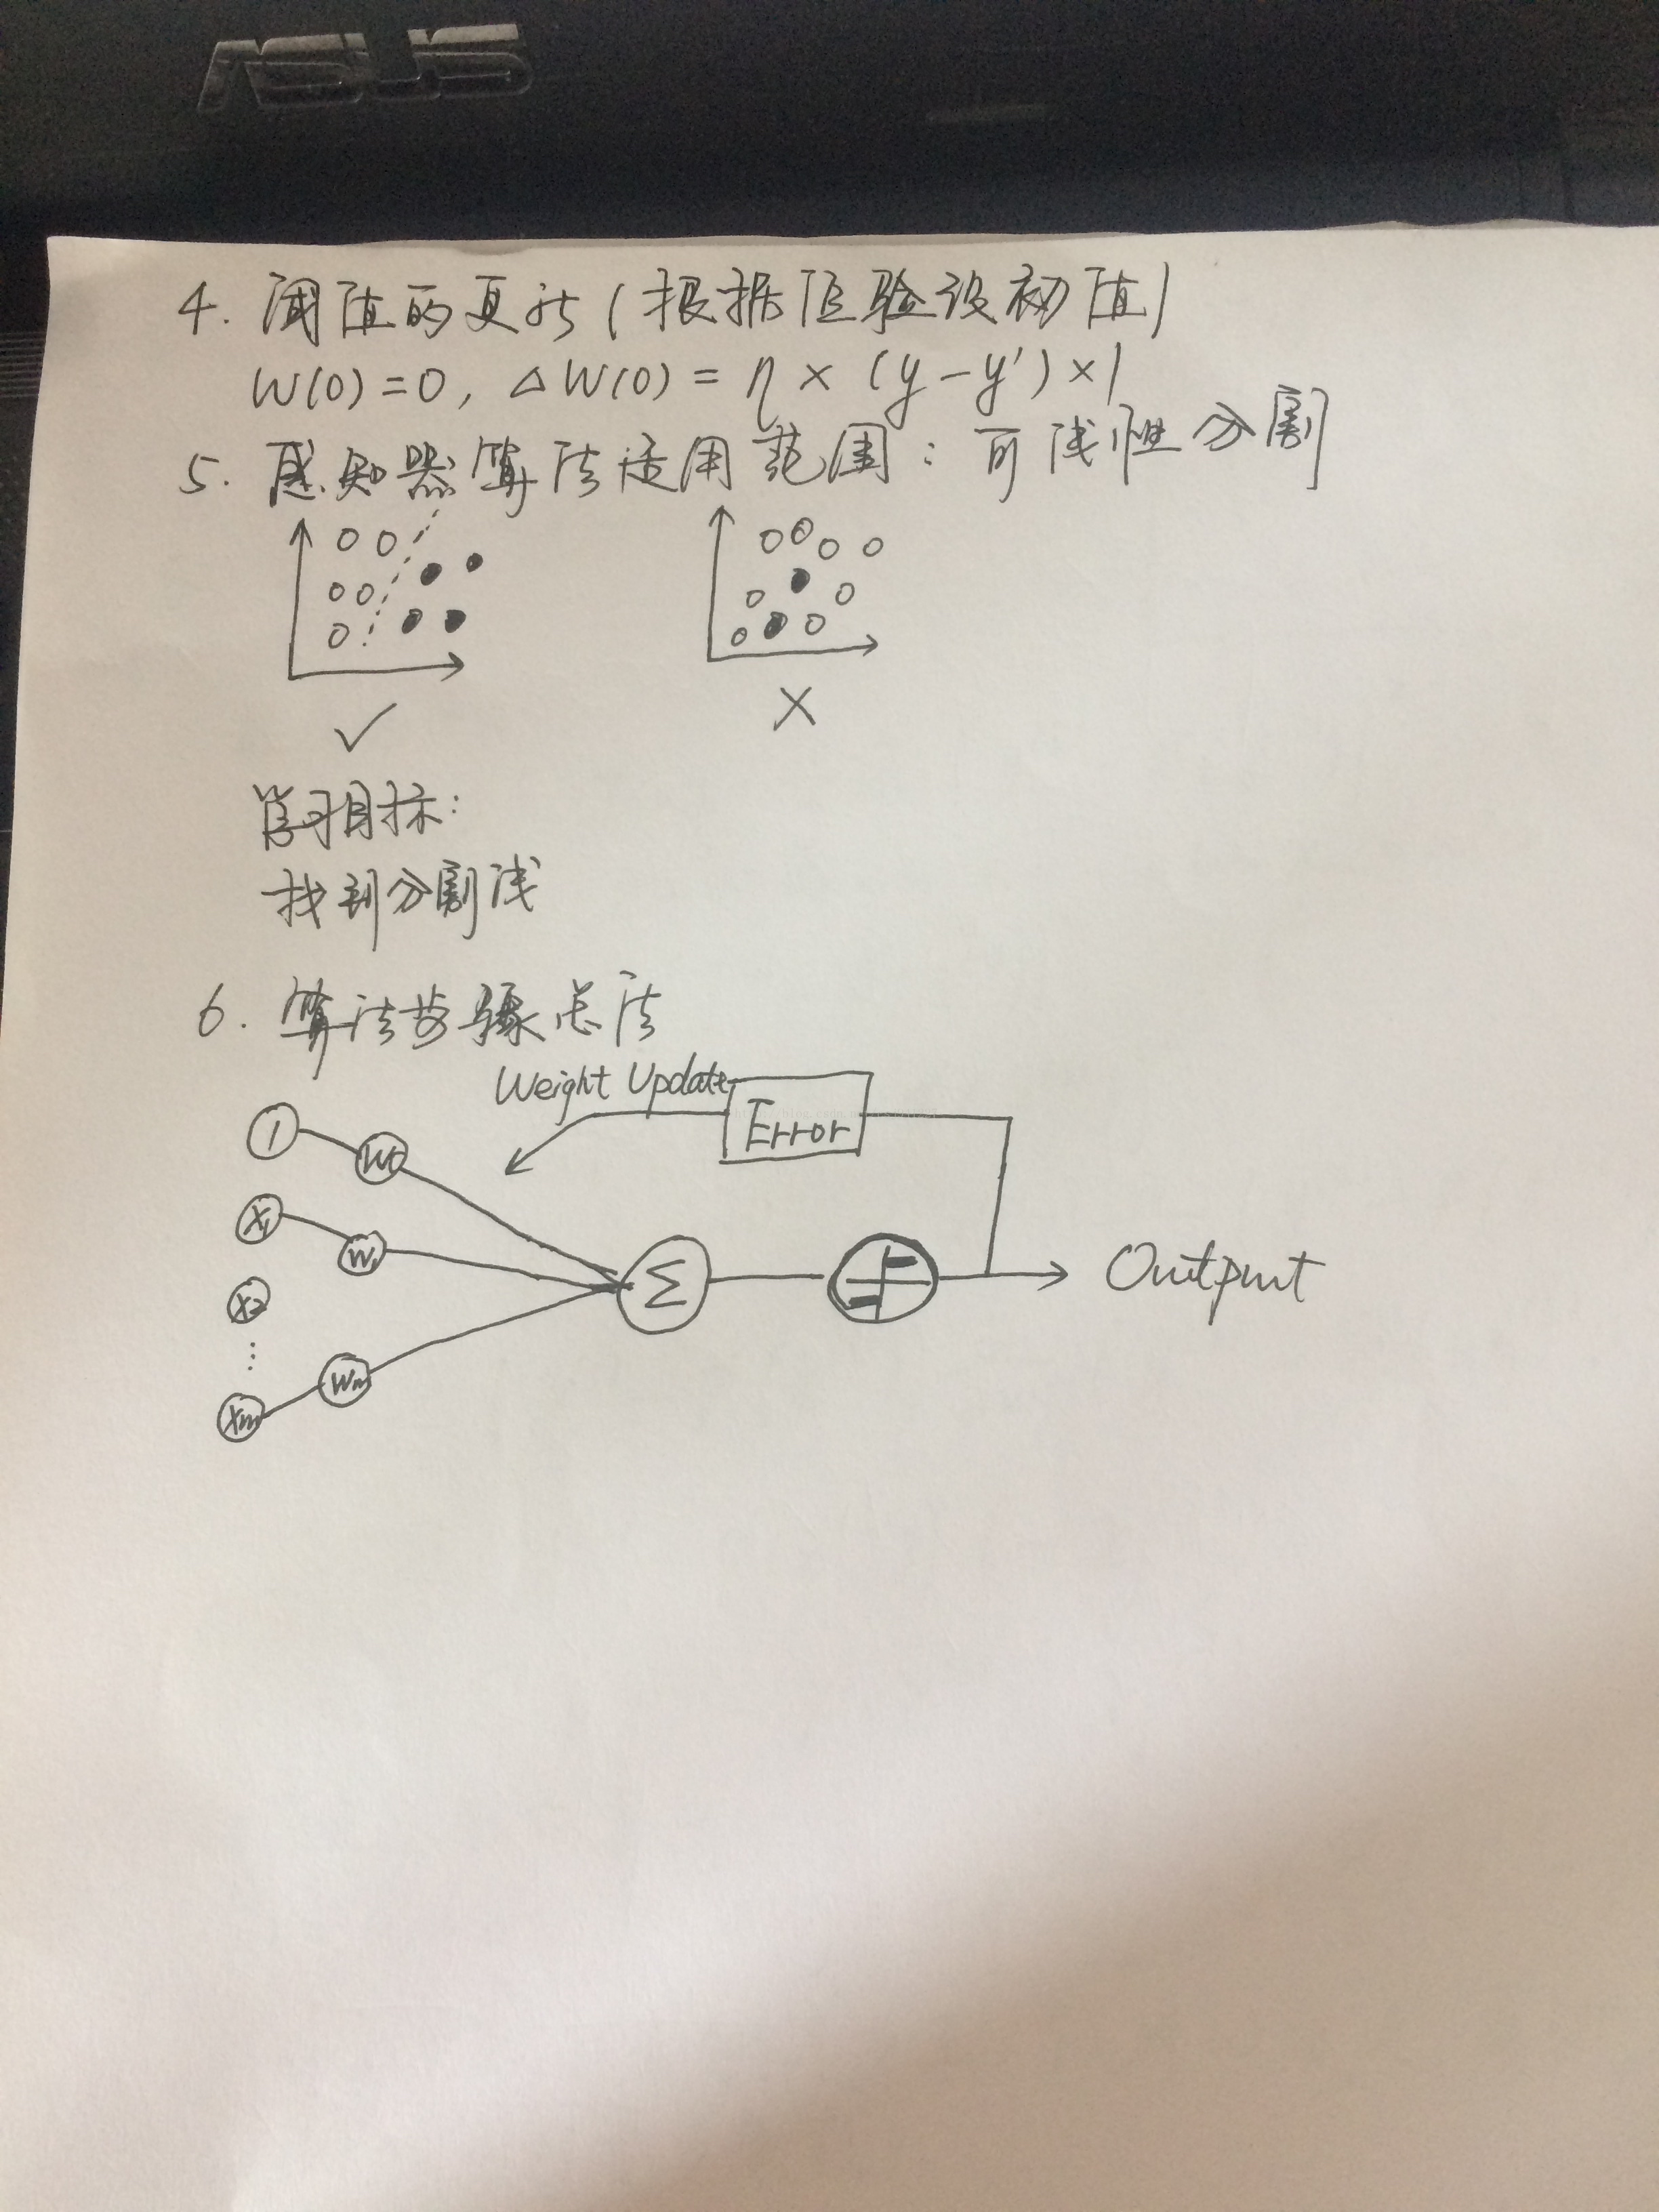 ASUS
4. 阈值的更新(根据经验设初值)
W(0)=0, △W(0)=η×(y-y')×1
5. 感知器算法适用范围:可线性分割
✓
×
学习目标:
找到分割线
6. 算法步骤总结
Weight Update
Error
1
W0
X1
W1
X2
⋮
Xm
Wm
Σ
Output